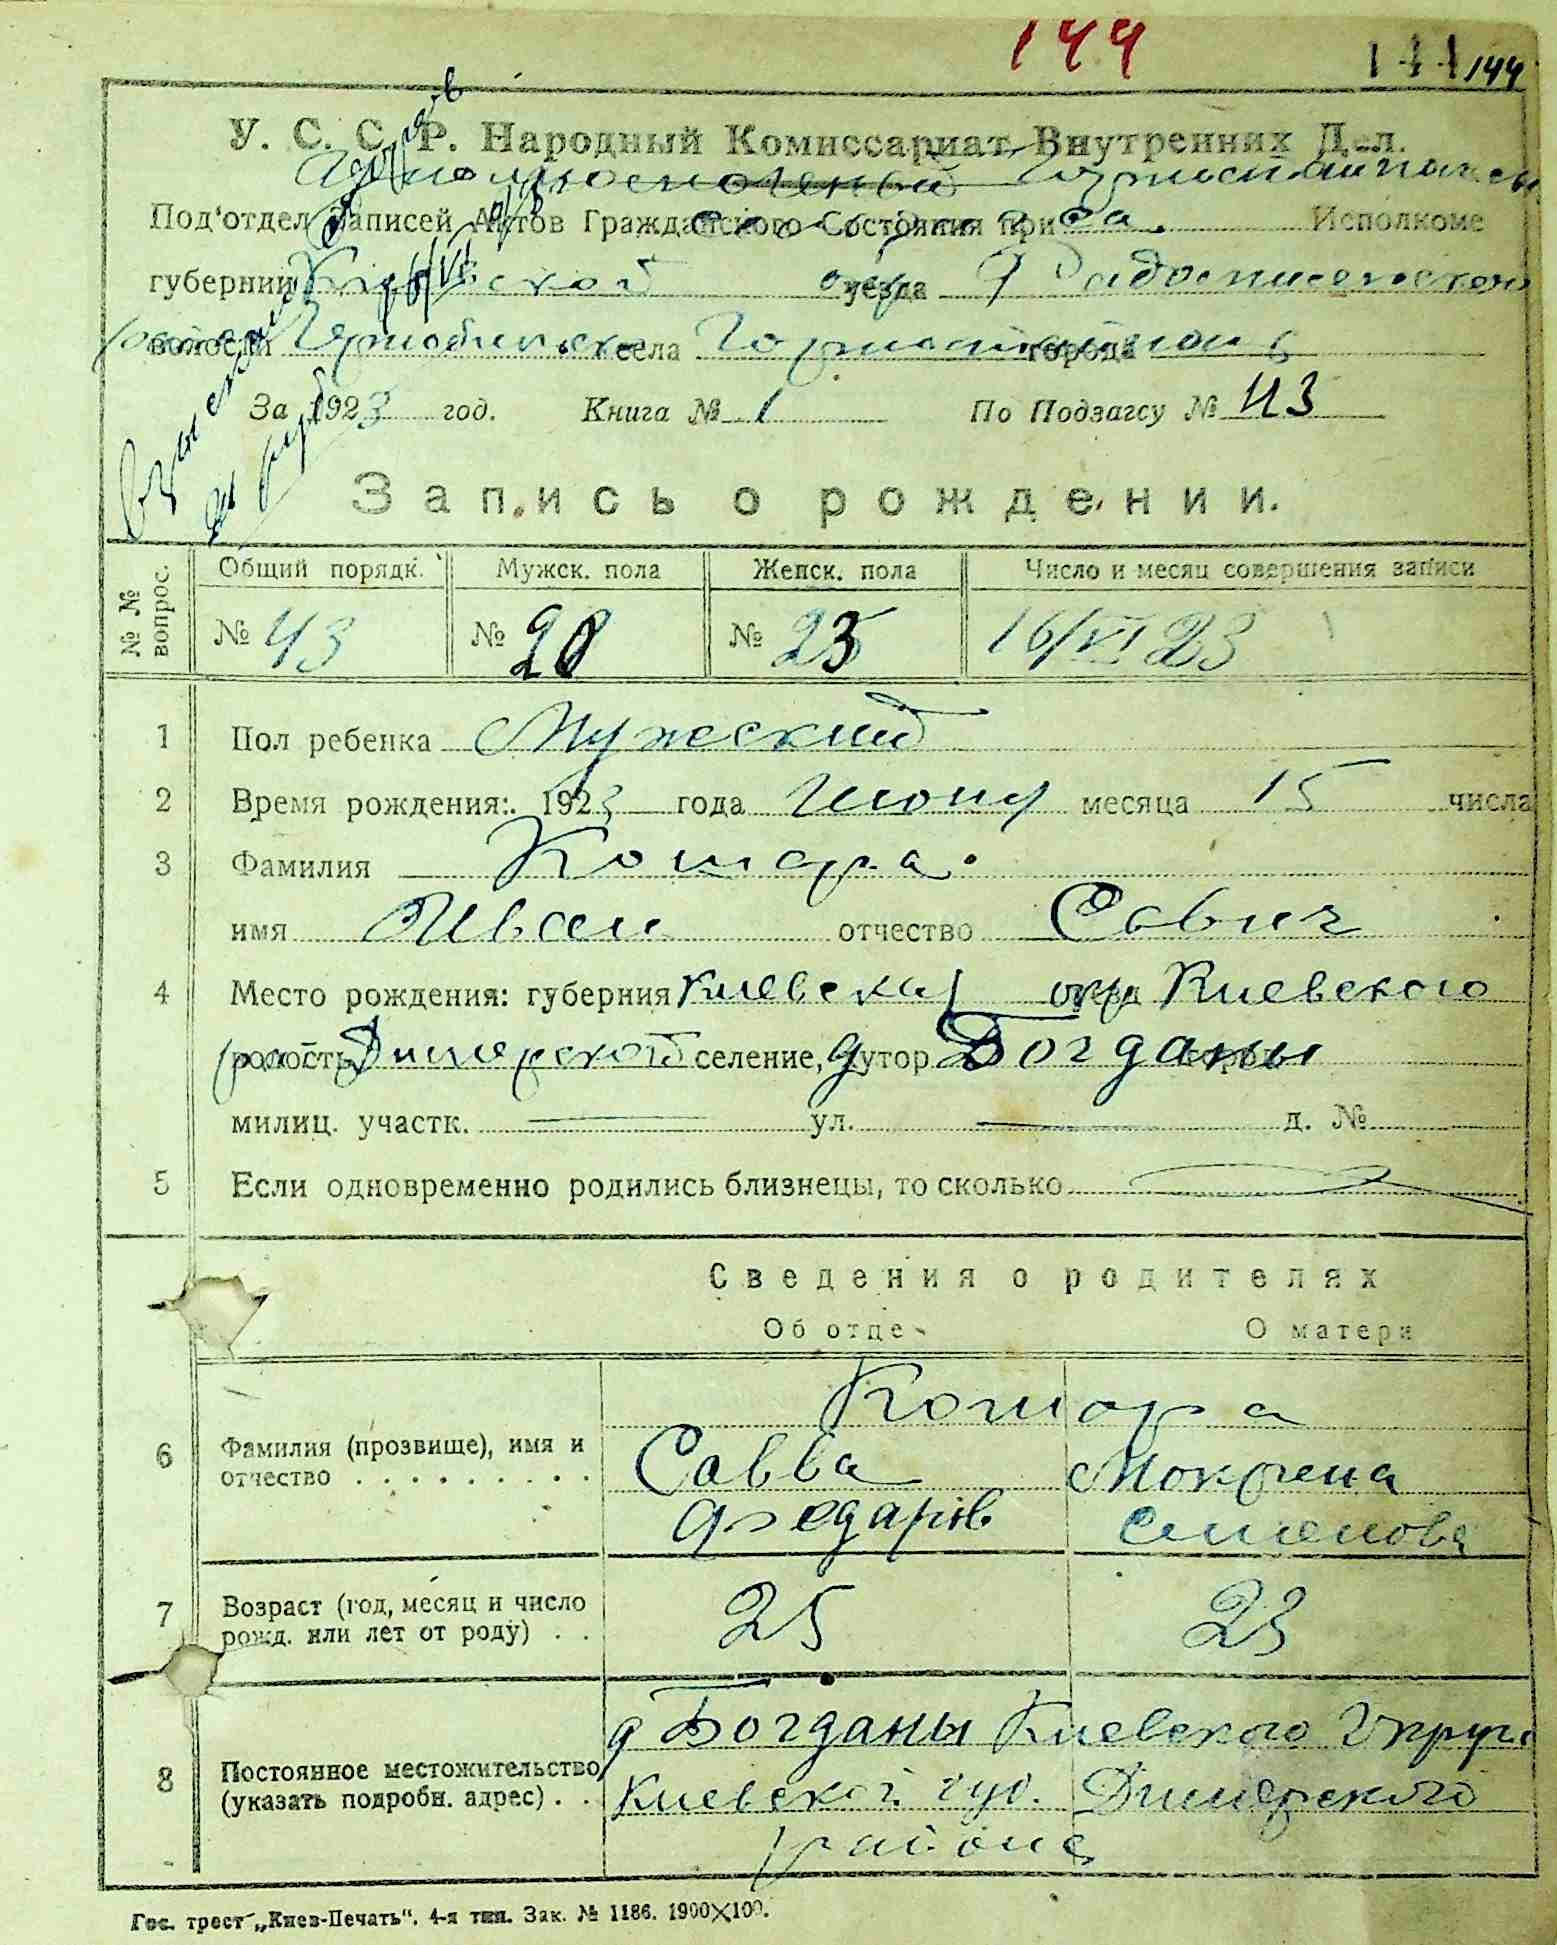 144
144 144
У. С. С. Р. Народный Комиссариат Внутренних Дел.
Под'отдел Записей Актов Гражданского Состояния при Исполкоме
губернии Киевской уезда Радомысльского
волости Чернобыльск села города
За 1923 год. Книга № 1 По Подзагсу № 43
Запись о рождении.
№ № вопрос. Общий порядк. Мужск. пола Женск. пола Число и месяц совершения записи
№ 43 № 20 № 23 16/VI 23
1 Пол ребенка Мужеский
2 Время рождения: 1923 года Июня месяца 15 числа
3 Фамилия Котора
имя Иван отчество Савич
4 Место рождения: губерния Киевская окр Киевского
волость Димерской селение, хутор Богданы
милиц. участк. ул. д. №
5 Если одновременно родились близнецы, то сколько
Сведения о родителях
Об отце О матери
Котора
6 Фамилия (прозвище), имя и отчество . . . . . . . . . Савва Мокрена
Федарів Семенова
7 Возраст (год, месяц и число рожд. или лет от роду) . . 25 23
д Богданы Киевского Округа
8 Постоянное местожительство (указать подробн. адрес) . . Киевской губ. Димерского
района
Гос. трест „Киев-Печать". 4-я тип. Зак. № 1186. 1900×100.